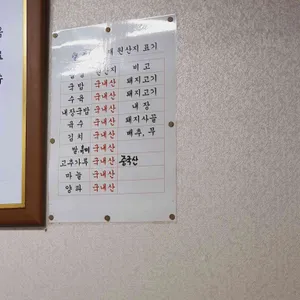 원산지 표기
원산지 비고
국밥 국내산 돼지고기
수육 국내산 돼지고기
내장국밥 국내산 내장
육수 국내산 돼지사골
김치 국내산 배추, 무
쌀, 국내산
고추가루 국내산 중국산
마늘 국내산
양파 국내산